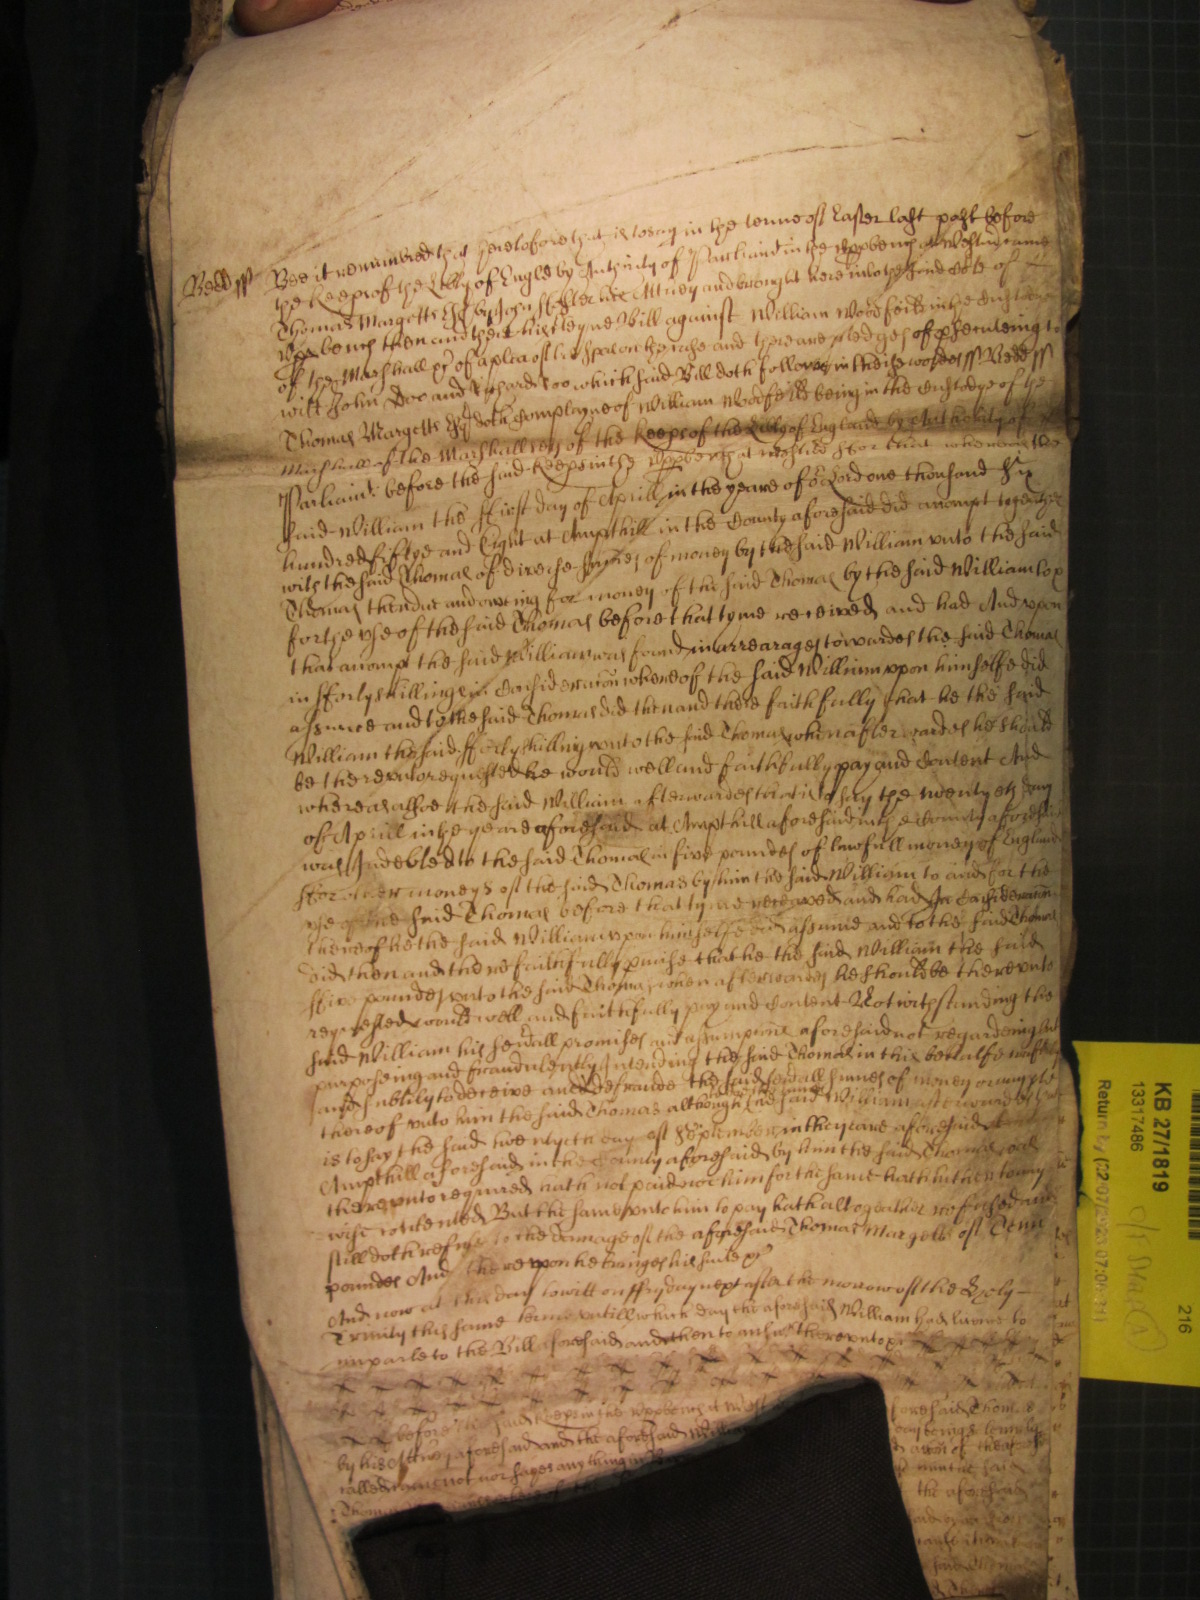 Bedd ss Bee it remembred that heretofore that is to say in the terme of Easter last past before
the Keeprs of the Libty of Engld by Authority of Parliamt in the upp bench at Westmr came
Thomas Margetts Esqr by John his Attney and brought here into the said Cote of
upp bench then and there his Certeyne Bill against William Woodfeild in the Custodye
of the Marshall &c of a plea of trespas on the case and there are pledges of prosecuteing to
witt John Doo and Richard Roo which said Bill doth follow in these wordes ss Bedd ss
Thomas Margetts Esqr doth Complayne of William Woodfeild being in the Custodye of the
Marshall of the Marshallsey of the Keeprs of the Libty of England by Authority of
Parliamt before the said Keeprs in the upp bench at Westmr ffor that whereas the
said William the ffirst day of Aprill in the yeare of or Lord one thousand six
hundred fiftye and Eight at Ampthill in the County aforesaid did accompt together
with the said Thomas of diverse summes of money by the said William unto the said
Thomas then due and oweing for money of the said Thomas by the said William to &
for the use of the said Thomas before that tyme received and had And upon
that accompt the said William was found in arrearages towardes the said Thomas
in fforty shillinges in Consideracion whereof the said William upon himselfe did
assume and to the said Thomas did then and there faithfully that he the said
William the said fforty shillings unto the said Thomas when afterwardes he should
be thereunto requested he would well and faithfully pay and Content And
whereas alsoe the said William afterwardes that is to say the twentyeth day
of Aprill in the yeare aforesaid at Ampthill aforesaid in the County aforesaid
was Indebted to the said Thomas in five poundes of lawfull money of England
ffor other moneys of the said Thomas by him the said William to and for the
use of the said Thomas before that tyme received and had In Consideracion
thereof he the said William upon himselfe did assume and to the said Thomas
did then and there faithfully pmise that he the said William the said
ffive poundes unto the said Thomas when afterwardes he should be thereunto
requested would well and faithfully pay and Content Notwithstanding the
said William his sevrall promises and assumpcions aforesaid not regardeing but
purposeing and fraudulently Intending the said Thomas in this behalfe craftily
and subtily to deceive and defraude the said sevrall summes of money or any pte
thereof unto him the said Thomas although the said William afterwardes that
is to say the said twentyeth day of September in the yeare aforesaid at
Ampthill aforesaid in the County aforesaid by him the said Thomas was
thereunto required hath not paid nor him for the same hath hitherto any
wise contented But the same unto him to pay hath altogeather refused and
still doth refuse to the damage of the aforesaid Thomas Margetts of Tenn
poundes And thereupon he bringes his suite &c
And now at this day to witt on ffryday next after the morrow of the Holy
Trinity this same terme untill which day the aforesaid William had licence to
imparle to the Bill aforesaid and then to answr thereunto &c
before the said Keeprs in the upp bench at Westmr aforesaid Thomas
by his Attney aforesaid and the aforesaid William
called came not nor sayes any thing in
Thomas
the aforesaid